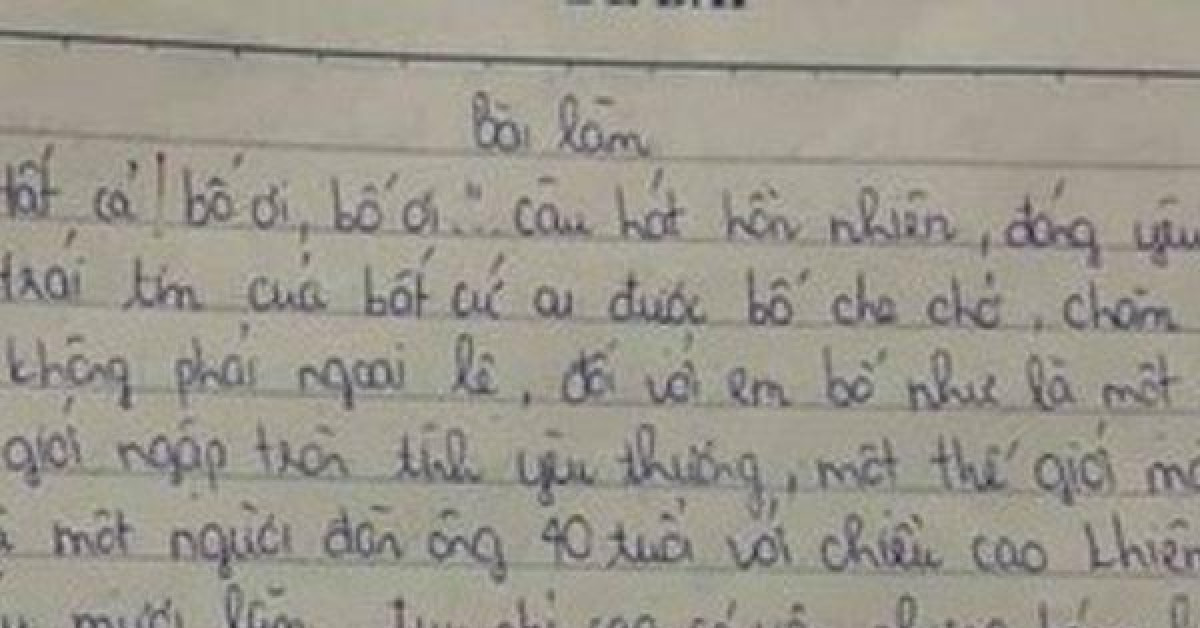 Bài làm
tất cả! bố ơi, bố ơi..." câu hát hồn nhiên, đáng yêu
trái tim của bất cứ ai được bố che chở, chăm
không phải ngoại lệ, đối với em bố như là một
giới ngập tràn tình yêu thương, một thế giới mà
một người đàn ông 40 tuổi với chiều cao khiêm
mười lăm